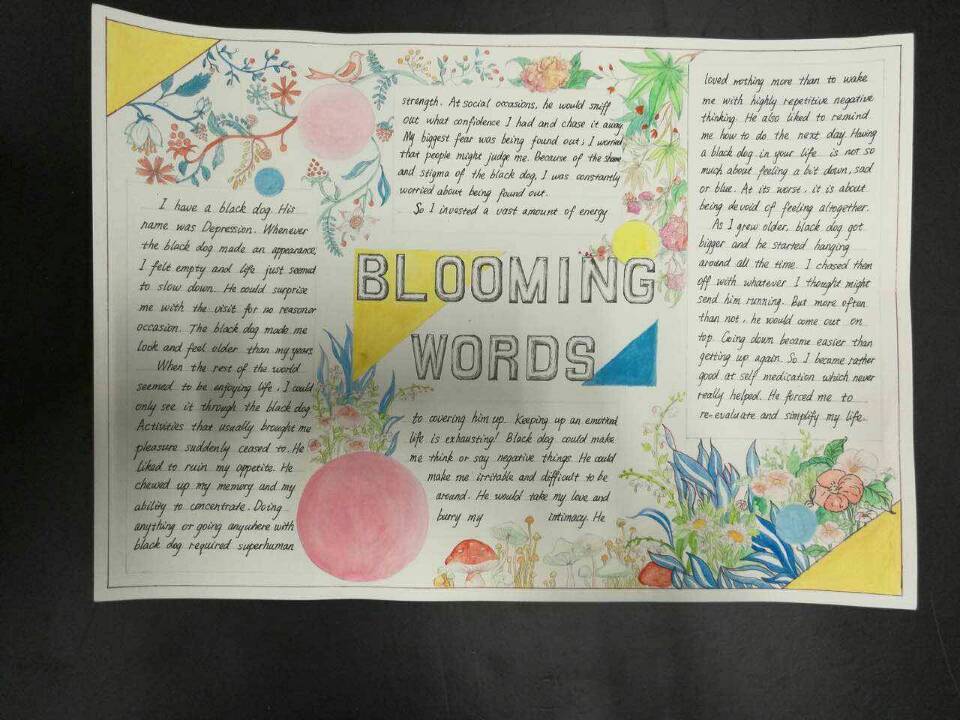 I have a black dog. His
name was Depression. Whenever
the black dog made an appearance,
I felt empty and life just seemed
to slow down. He could surprise
me with the visit for no reasoner
occasion. The black dog made me
look and feel older than my years
When the rest of the world
seemed to be enjoying life, I could
only see it through the black dog
Activities that usually brought me
pleasure suddenly ceased to. He
liked to ruin my appetite. He
chewed up my memory and my
ability to concentrate. Doing
anything or going anywhere with
black dog required superhuman
strength. At social occasions, he would sniff
out what confidence I had and chase it away
My biggest fear was being found out; I worried
that people might judge me. Because of the shame
and stigma of the black dog, I was constantly
worried about being found out.
So I invested a vast amount of energy
BLOOMING
WORDS
to covering him up. Keeping up an emotional
life is exhausting! Black dog could make
me think or say negative things. He could
make me irritable and difficult to be
around. He would take my love and
burry my intimacy. He
loved nothing more than to wake
me with highly repetitive negative
thinking. He also liked to remind
me how to do the next day. Having
a black dog in your life is not so
much about feeling a bit down, sad
or blue. At its worst, it is about
being devoid of feeling altogether.
As I grew older, black dog got
bigger and he started hanging
around all the time. I chased them
off with whatever I thought might
send him running. But more often
than not, he would come out on
top. Going down became easier than
getting up again. So I became rather
good at self medication which never
really helped. He forced me to
re-evaluate and simplify my life.